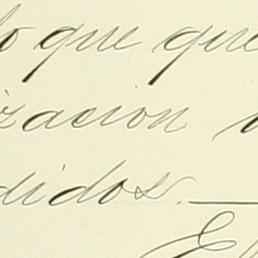 lo que que
ización
didos.